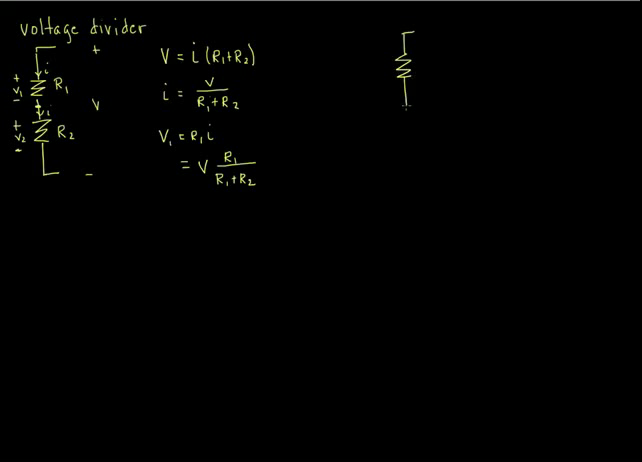 voltage divider
+
i
+
V₁
-
R₁
i
V
+
V₂
-
R₂
-
V = i (R₁+R₂)
i = V / R₁+R₂
V₁ = R₁ i
= V R₁ / R₁+R₂